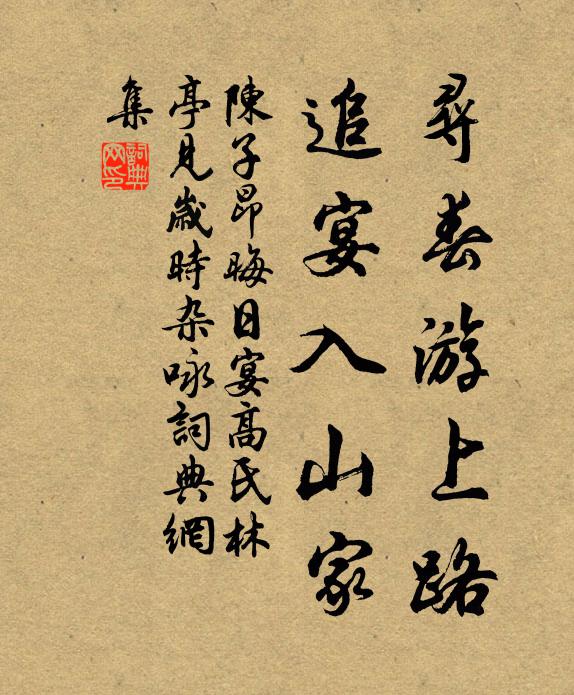 尋春游上路
追宴入山家
陳子昂晦日宴高氏林
亭見歲時杂咏詞典網
集
詞典網印